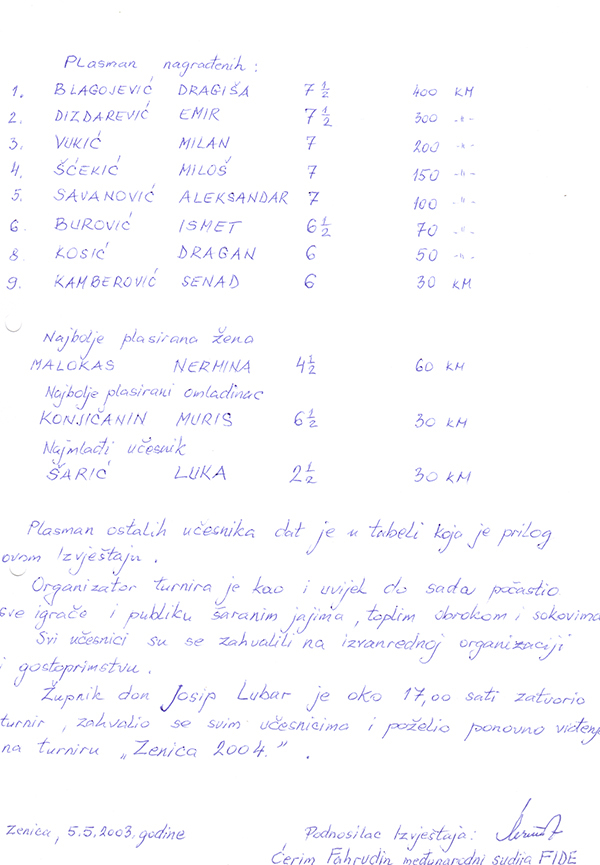 Plasman nagrađenih :
1. BLAGOJEVIĆ DRAGIŠA 7 1/2 400 KM
2. DIZDAREVIĆ EMIR 7 1/2 300 -"-
3. VUKIĆ MILAN 7 200 -"-
4. ŠĆEKIĆ MILOŠ 7 150 -"-
5. SAVANOVIĆ ALEKSANDAR 7 100 -"-
6. BUROVIĆ ISMET 6 1/2 70 -"-
8. KOSIĆ DRAGAN 6 50 -"-
9. KAMBEROVIĆ SENAD 6 30 KM
Najbolje plasirana žena
MALOKAS NERMINA 4 1/2 60 KM
Najbolje plasirani omladinac
KONJIČANIN MURIS 6 1/2 30 KM
Najmlađi učesnik
ŠARIĆ LUKA 2 1/2 30 KM
Plasman ostalih učesnika dat je u tabeli koja je prilog
ovom Izvještaju .
Organizator turnira je kao i uvijek do sada počastio
sve igrače i publiku šaranim jajima , toplim obrokom i sokovima
Svi učesnici su se zahvalili na izvanrednoj organizaciji
i gostoprimstvu .
Župnik don Josip Lubar je oko 17,00 sati zatvorio
turnir , zahvalio se svim učesnicima i poželio ponovno viđenje
na turniru „Zenica 2004.” .
Zenica, 5.5.2003. godine Podnosilac Izvještaja :
Ćerim Fahrudin međunarodni sudija FIDE